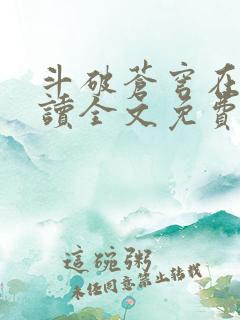 斗破蒼穹在
讀全文免費
這碗粥
未經同意禁止轉載